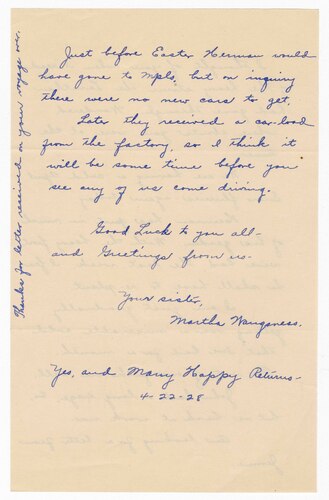 Just before Easter Herman would
have gone to Mpls, but on inquiry
there were no new cars to get,
Later they received a car-load
from the factory, so I think it
will be some time before you
see any of us come driving.
Good Luck to you all-
and Greetings from us-
Your sister,
Martha Wangsness.
Yes, and Many Happy Returns-
4-22-28
Thanks for letter received on your voyage over.